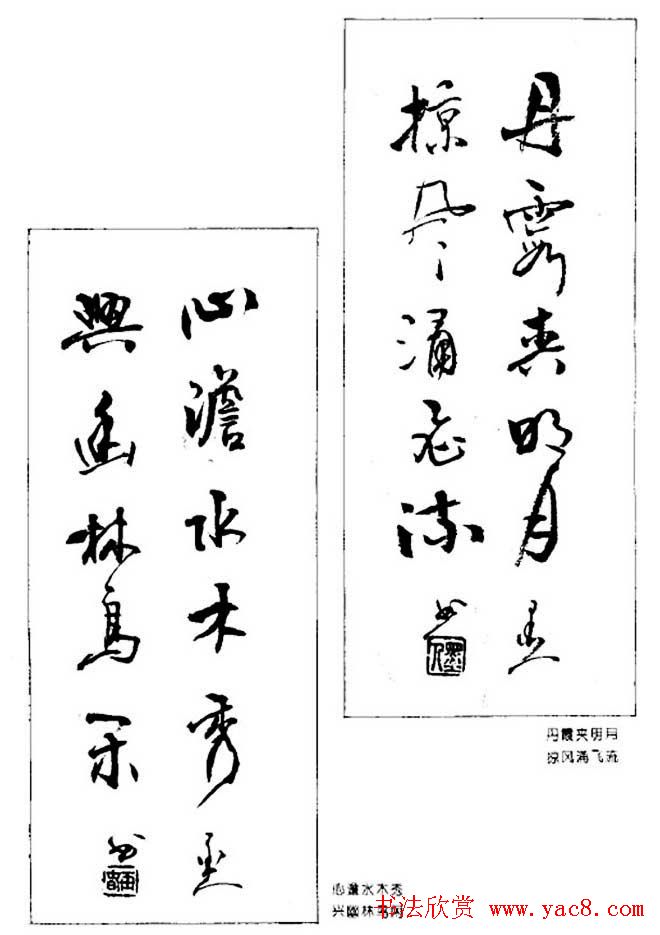 丹霞夹明月
掠风涌飞流
丹霞夹明月
掠风涌飞流
心澹水木秀
興幽林鳥閑
心澹水木秀
兴幽林鸟闲
书法欣赏 www.yac8.com